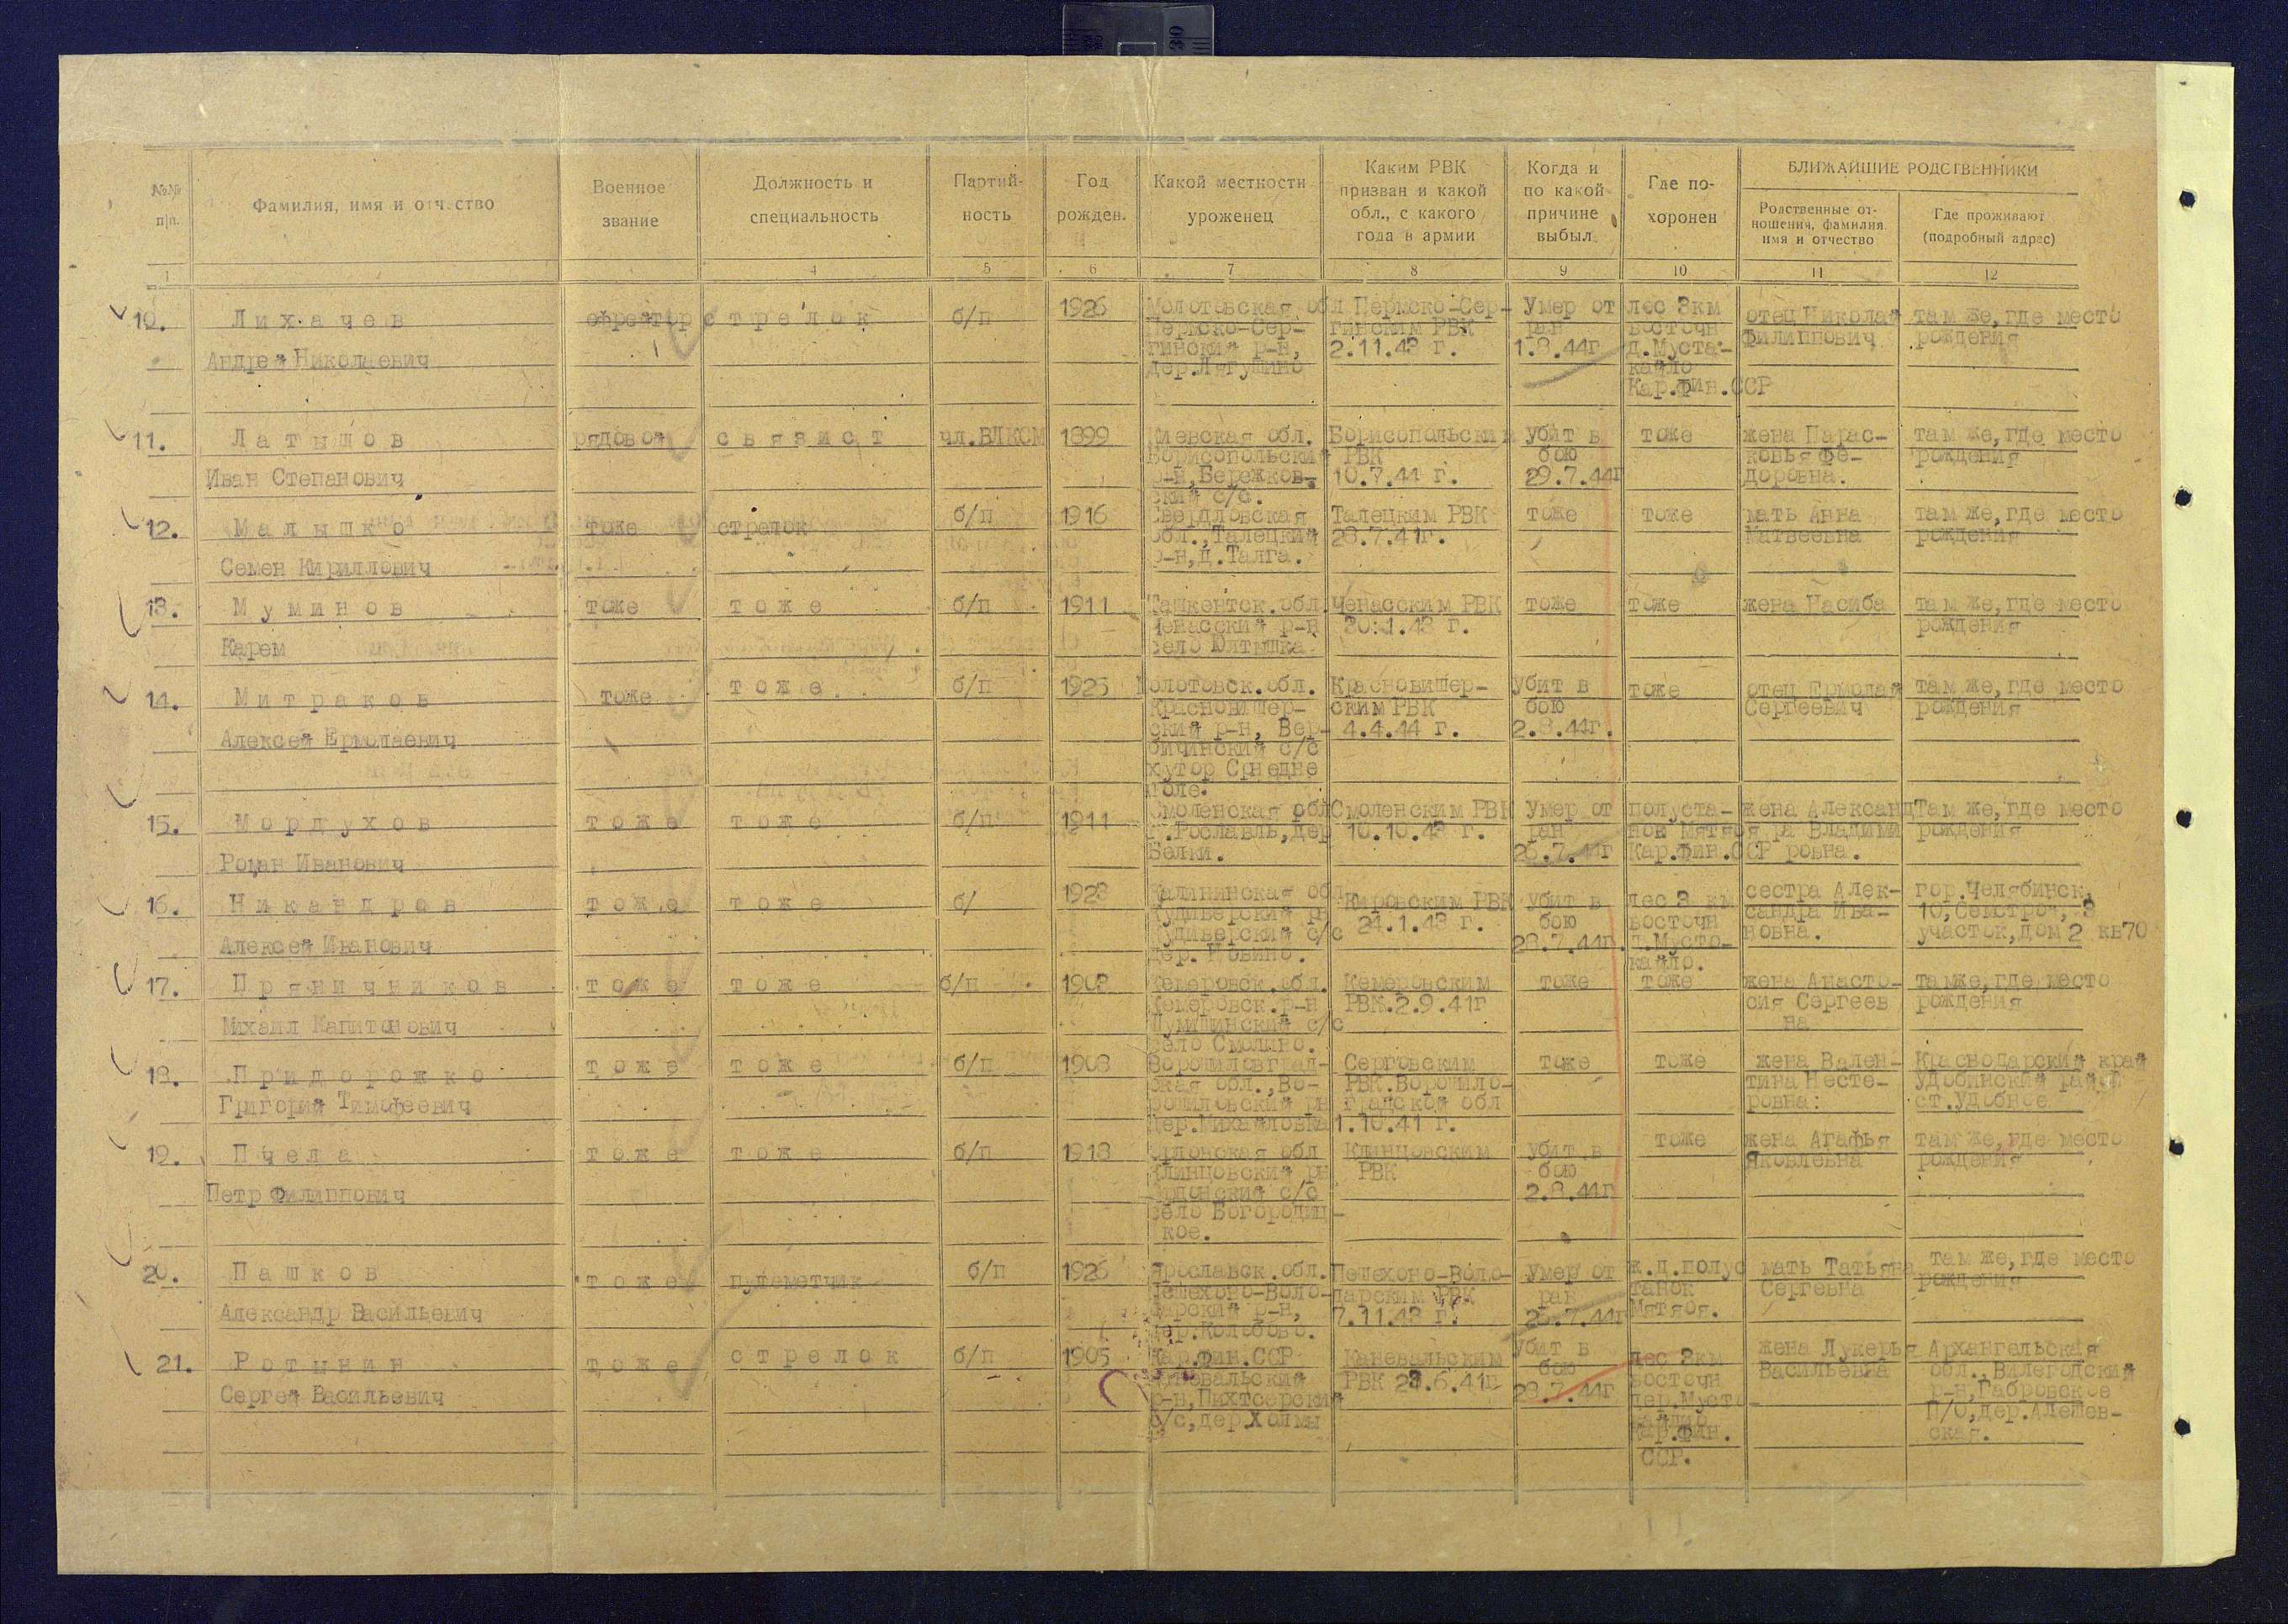 №№ п/п.
Фамилия, имя и отчество
Военное звание
Должность и специальность
Партий-ность
Год рожден.
Какой местности уроженец
Каким РВК призван и какой обл., с какого года в армии
Когда и по какой причине выбыл
Где по-хоронен
БЛИЖАЙШИЕ РОДСТВЕННИКИ
Родственные от-ношения, фамилия, имя и отчество
Где проживают (подробный адрес)
1 4 5 6 7 8 9 10 11 12
10.
Лихачев
Андрей Николаевич
ефрейтор
стрелок
б/п
1926
Молотовская обл
Пермско-Сер-
гинский р-н,
дер.Лягушино
Пермско-Сер-
гинским РВК
2.11.43 г.
Умер от
ран
1.8.44г
лес 3км
восточн
д.Муста-
кайло
Кар.фин.ССР
отец Николай
Филиппович
там же, где место
рождения
11.
Латышов
Иван Степанович
рядовой
связист
чл.ВЛКСМ
1899
Киевская обл.
Борисопольский
р-н, Бережков-
ский с/с.
Борисопольским
РВК
10.7.44 г.
убит в
бою
29.7.44г
тоже
жена Парас-
ковья Фе-
доровна.
там же, где место
рождения
12.
Малышко
Семен Кириллович
тоже
стрелок
б/п
1916
Свердловская
обл., Талецкий
р-н, д. Талга.
Талецким РВК
28.7.41г.
тоже
тоже
мать Анна
Матвеевна
там же, где место
рождения
13.
Муминов
Карем
тоже
тоже
б/п
1911
Ташкентск.обл.
Ченасский р-н
село Юлтышка
Ченасским РВК
30.1.43 г.
тоже
тоже
жена Насиба
там же, где место
рождения
14.
Митраков
Алексей Ермолаевич
тоже
тоже
б/п
1925
Молотовск.обл.
Красновишер-
ский р-н, Вер-
бичинский с/с
хутор Средне
поле.
Красновишер-
ским РВК
4.4.44 г.
убит в
бою
2.8.44г.
тоже
отец Ермолай
Сергеевич
там же, где место
рождения
15.
Мордухов
Роман Иванович
тоже
тоже
б/п
1911
Смоленская обл
г.Рославль, дер
Белки.
Смоленским РВК
10.10.43 г.
Умер от
ран
26.7.44г
полуста-
нов Мятяоя
Кар.фин.ССР
жена Александ
ра Владими
ровна.
Там же, где место
рождения
16.
Никандров
Алексей Иванович
тоже
тоже
б/
1923
Калининская обл
Кудиверский рн
Кудиверский с/с
дер. Новино.
Кировским РВК
24.1.43 г.
убит в
бою
28.7.44г.
лес 3 км
восточн
д.Мусто-
кайло.
сестра Алек-
сандра Ива-
новна.
гор.Челябинск,
участок, дом 2 кв70
17.
Пряничников
Михаил Капитонович
тоже
тоже
б/п
1908
Кемеровск.обл.
Кемеровск.р-н
с/с
село Смолино.
Кемеровским
РВК.2.9.41г
тоже
тоже
жена Анасто-
сия Сергеев
на
тамже, где место
рождения
18.
Придорожко
Григорий Тимофеевич
тоже
тоже
б/п
1908
Ворошиловград-
ская обл., Во-
рошиловский рн
дер.Михайловка
Серговским
РВК.Ворошило-
градской обл
1.10.41 г.
тоже
тоже
жена Вален-
тина Несте-
ровна:
Краснодарский край
Удобинский район
ст.Удобное
19.
Пчела
Петр Филиппович
тоже
тоже
б/п
1918
Орловская обл
Клинцовский рн
с/с
село Богородиц-
кое.
Клинцовским
РВК
убит в
бою
2.8.44г
тоже
жена Агафья
Яковлевна
там же, где место
рождения
20.
Пашков
Александр Васильевич
тоже
пулеметчик
б/п
1926
Ярославск.обл.
Пошехоно-Воло-
дарский р-н,
дер.Колобово.
Пошехоно-Воло-
дарским РВК
7.11.43 г.
Умер от
ран
26.7.44г
ж.д.полус
танок
Мятяоя.
мать Татьяна
Сергевна
там же, где место
рождения
21.
Ротынин
Сергей Васильевич
тоже
стрелок
б/п
1905
Кар.фин.ССР
р-н, Пихтозерский
с/с, дер.Холмы
Каневальским
РВК 23.6.41г
Убит в
бою
28.7.44г
лес 3км
восточн
дер.Мусто-
кайло
Кар.фин.
ССР.
жена Лукерья
Васильевна
Архангельская
обл., Вилегодский
р-н, Габровское
П/О, дер.Алешев-
ская.